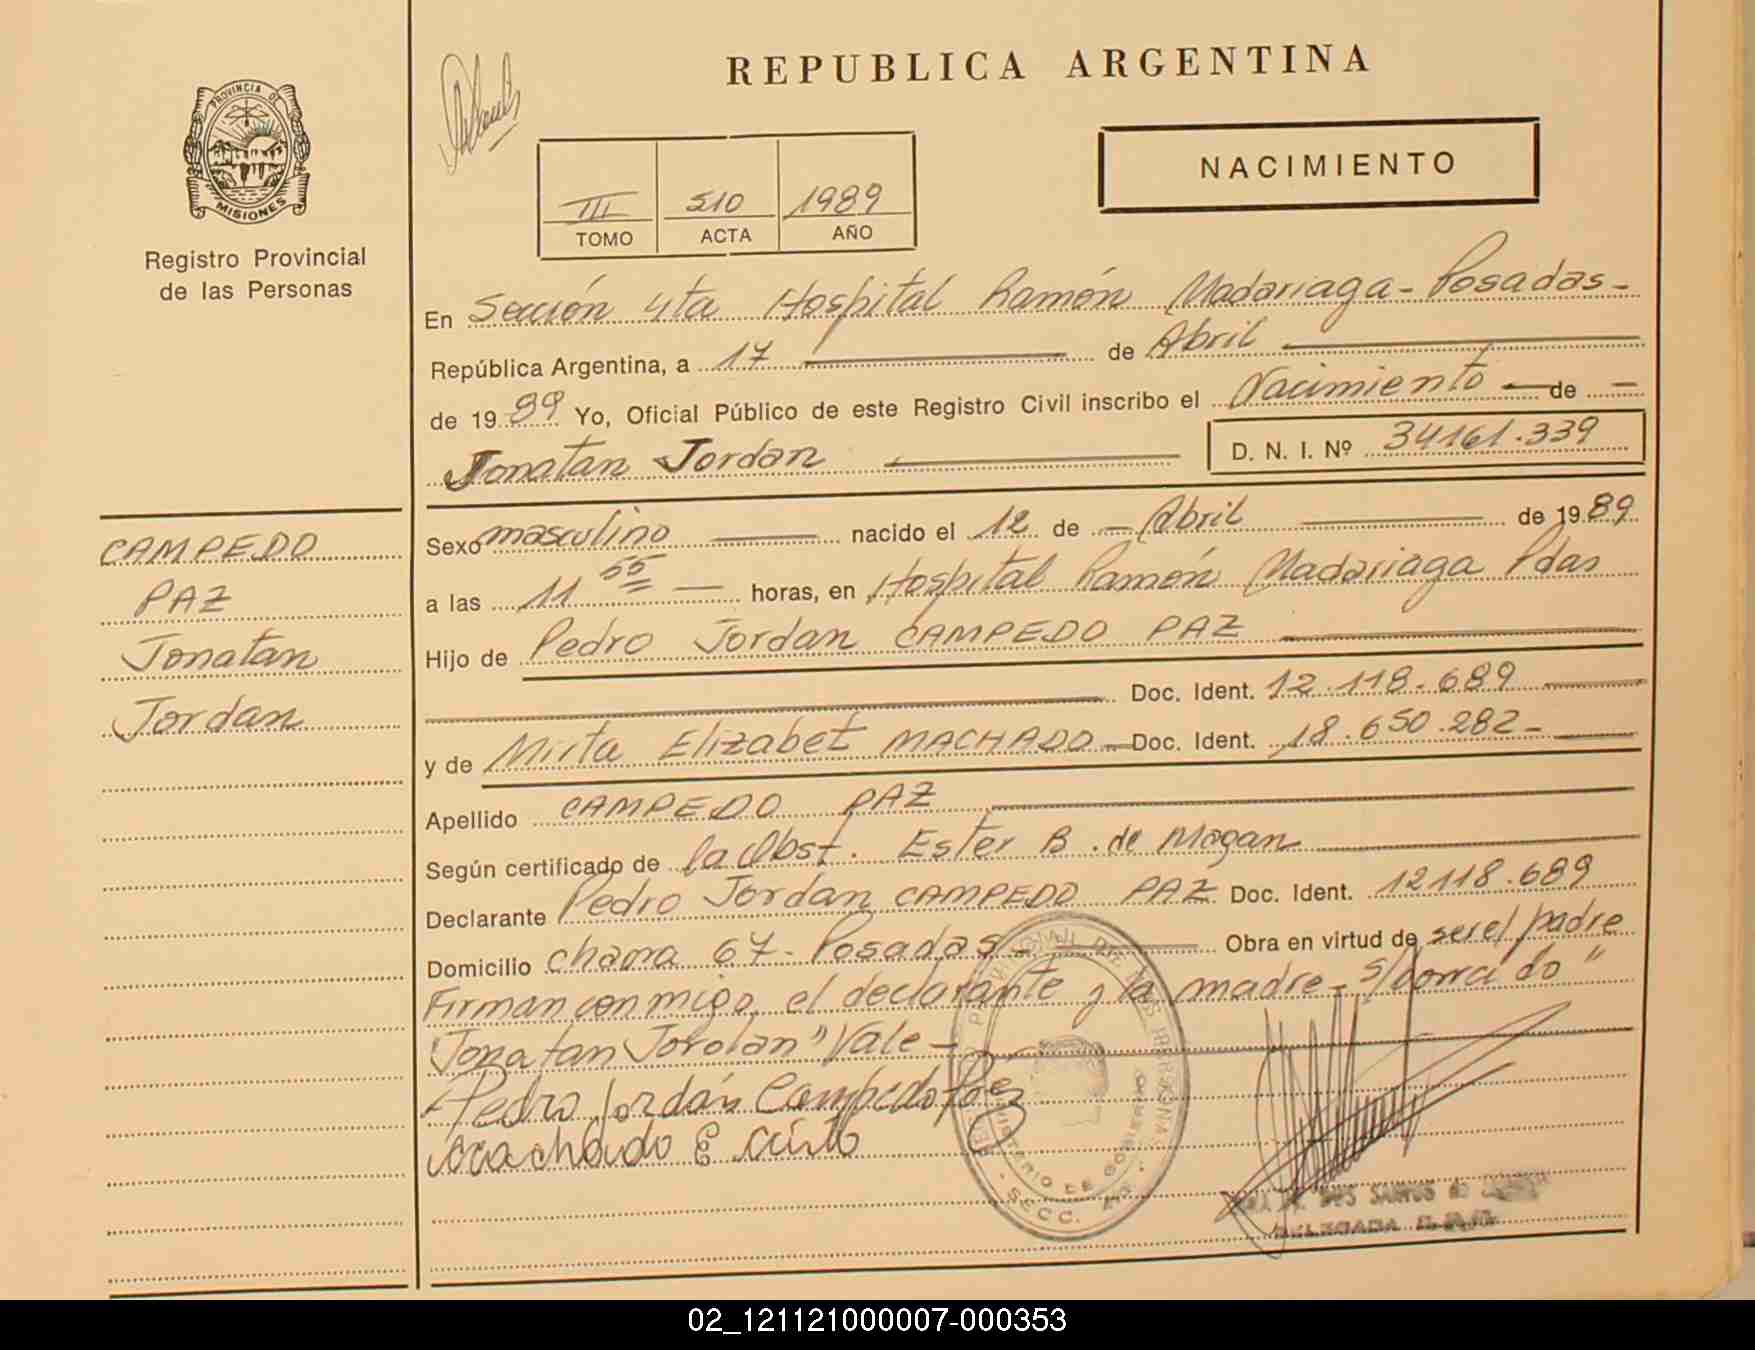 REPUBLICA ARGENTINA
PROVINCIA DE
MISIONES
Registro Provincial
de las Personas
NACIMIENTO
III 510 1989
TOMO ACTA AÑO
En Sección 4ta Hospital Ramón Madariaga - Posadas -
República Argentina, a 17 de Abril
de 1989 Yo, Oficial Público de este Registro Civil inscribo el Nacimiento de
Jonatan Jordan D. N. I. Nº 34161.339
CAMPEDO
PAZ
Jonatan
Jordan
Sexo masculino nacido el 12 de Abril de 1989
a las 11 55 horas, en Hospital Ramón Madariaga Pdas
Hijo de Pedro Jordan CAMPEDO PAZ
Doc. Ident. 12.118.689
y de Mirta Elizabet MACHADO Doc. Ident. 18.650.282-
Apellido CAMPEDO PAZ
Según certificado de la Obst. Ester B. de Mogan
Declarante Pedro Jordan CAMPEDO PAZ Doc. Ident. 12118.689
Domicilio chacra 67 - Posadas - Obra en virtud de ser el padre
Firman conmigo el declarante y la madre - s/borrado "
Jonatan Jordan" Vale -
Pedro Jordán Campedo Paz
Machado E Mirta
MINISTERIO DE GOBIERNO
SECC. 4ta.
DOS SANTOS de
DELEGADA
02_121121000007-000353